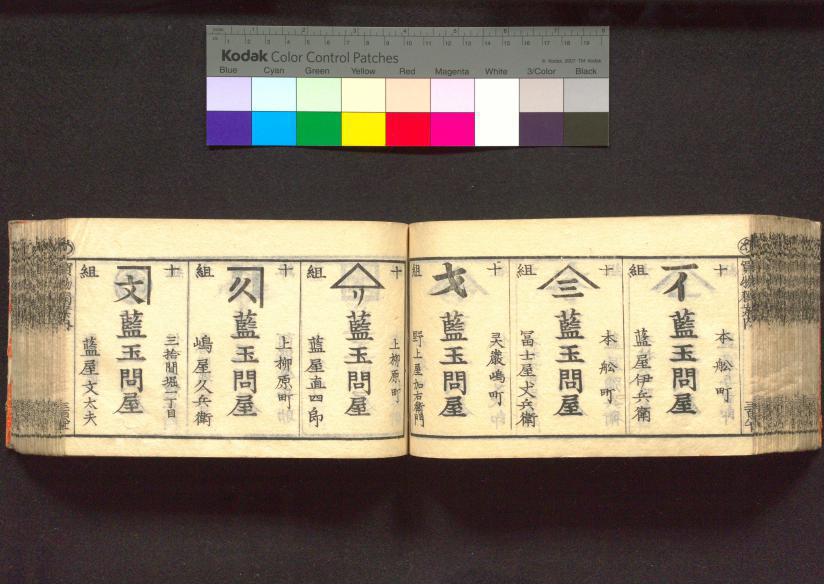 Kodak Color Control Patches
© Kodak, 2007 TM: Kodak
Blue Cyan Green Yellow Red Magenta White 3/Color Black
十組
藍玉問屋
本舩町
藍屋伊兵衛
十組
三
藍玉問屋
本舩町
冨士屋犬兵衛
十組
藍玉問屋
灵巌嶋町
野上屋加右衛門
十組
リ
藍玉問屋
上柳原町
藍屋直四郎
十組
久
藍玉問屋
上柳原町
嶋屋久兵衛
十組
文
藍玉問屋
三拾間堀一丁目
藍屋文太夫